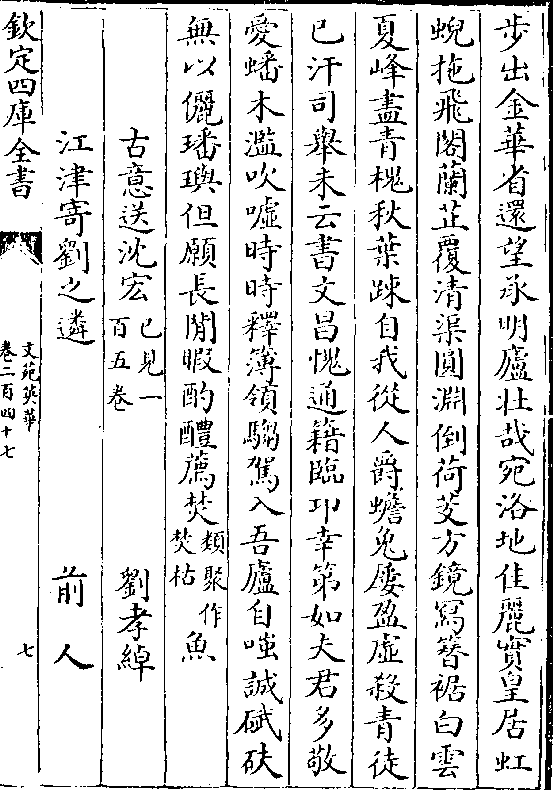 步出金華省還望承明廬壯哉宛洛地佳麗實皇居虹
蜺拖飛閣蘭芷覆清渠圓淵倒荷芰方鏡寫簪裾白雲
夏峰盡青槐秋葉踈自我從人爵蟾兔屢盈虛殺青徒
已汗司舉未云書文昌愧通籍臨邛幸第如夫君多敬
愛蟠木濫吹噓時時釋簿領騶駕入吾廬自嗤誠碔砆
無以儷璠璵但願長閒暇酌醴薦焚類聚作焚枯魚
古意送沈宏已見一百五卷 劉孝綽
江津寄劉之遴 前人
欽定四庫全書
文苑英華
卷二百四十七
七